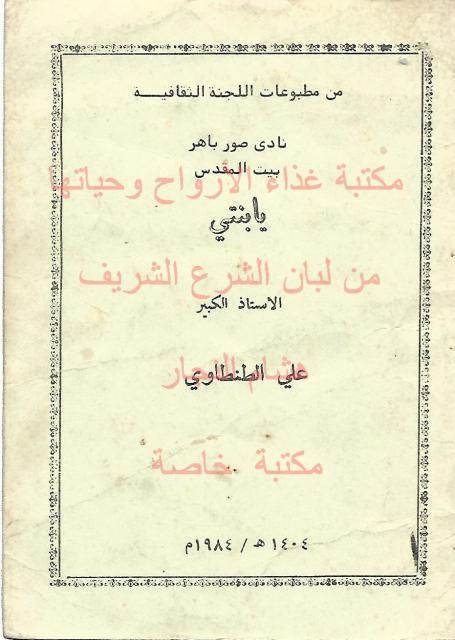 من مطبوعات اللجنة الثقافيــة
نادى صور باهر
بيت المقدس
مكتبة غذاء الأرواح وحياتها
يابنتي
من لبان الشرع الشريف
الاستاذ الكبير
هشام النجار
علي الطنطاوي
مكتبة خاصة
١٤٠٤ هـ / ١٩٨٤م